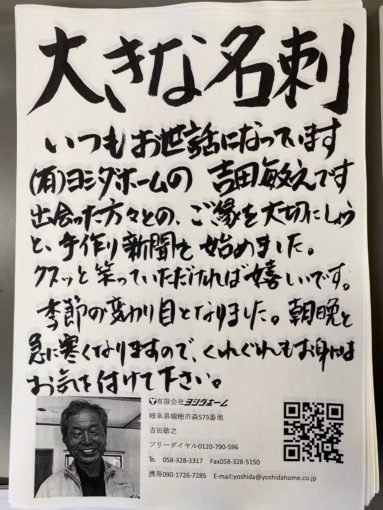 大きな名刺
いつもお世話になっています
(有)ヨシダホームの 吉田敏之です
出会った方々との、ご縁を大切にしよう
と、手作り新聞を 始めました。
クスッと笑っていただければ嬉しいです。
季節の変わり目となりました。朝晩と
急に寒くなりますので、くれぐれもお身体は
お気を付けて下さい。
有限会社ヨシダホーム
岐阜県瑞穂市森573番地
吉田敏之
フリーダイヤル0120-790-596
℡ 058-328-3317 Fax058-328-5150
携帯090-1726-7285 E-mail:yoshida@yoshidahome.co.jp